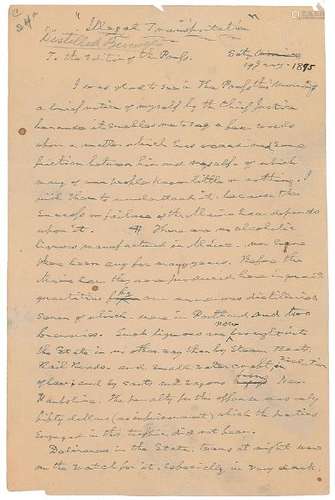 "Illegal Transportation"
Distilled
To the Editor of the Press.
1895
I was glad to see in The Press this morning
a brief notice of myself by the Chief Justice
because it enables me to say a few words
upon a matter which has occasioned some
friction between him and myself of which
many of our people know little or nothing. I
wish them to understand it, because the
success or failure of the Maine Law depends
upon it. There are no alcoholic
liquors manufactured in Maine, nor have
there been any for many years. Before the
Maine Law they were produced here in great
quantities there were seven distilleries
seven of which were in Portland and two
breweries. Such liquors are now brought into
the State in no other way than by Steam Boats,
Rail Roads and small water craft, in violation
of law; and by carts and wagons from New
Hampshire. The penalty for the offence was only
fifty dollars (no imprisonment) which the parties
engaged in this traffic did not fear.
Deliverances in the State, trains at night were
on the watch for it, especially in very dark